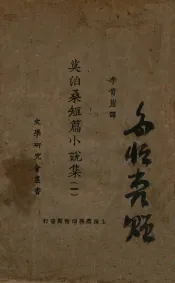 李青崖譯
莫泊桑短篇小說集(一)
文學研究會叢書
上海商務印書館發行